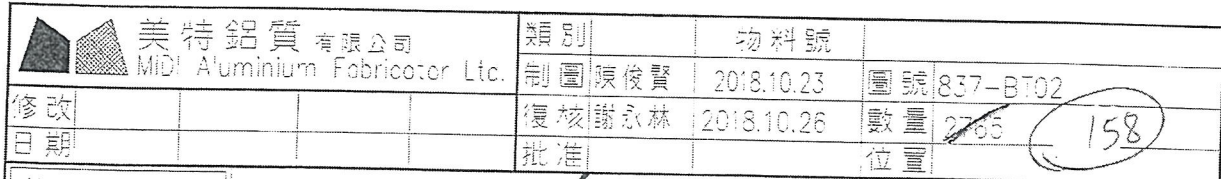 美特鋁質 有限公司
MiDi Aluminium Fabricator Ltd.
類別 物料號
制圖 陳俊賢 2018.10.23 圖號 837-BT02
修改 復核 謝永林 2018.10.26 數量 2765 158
日期 批准 位置